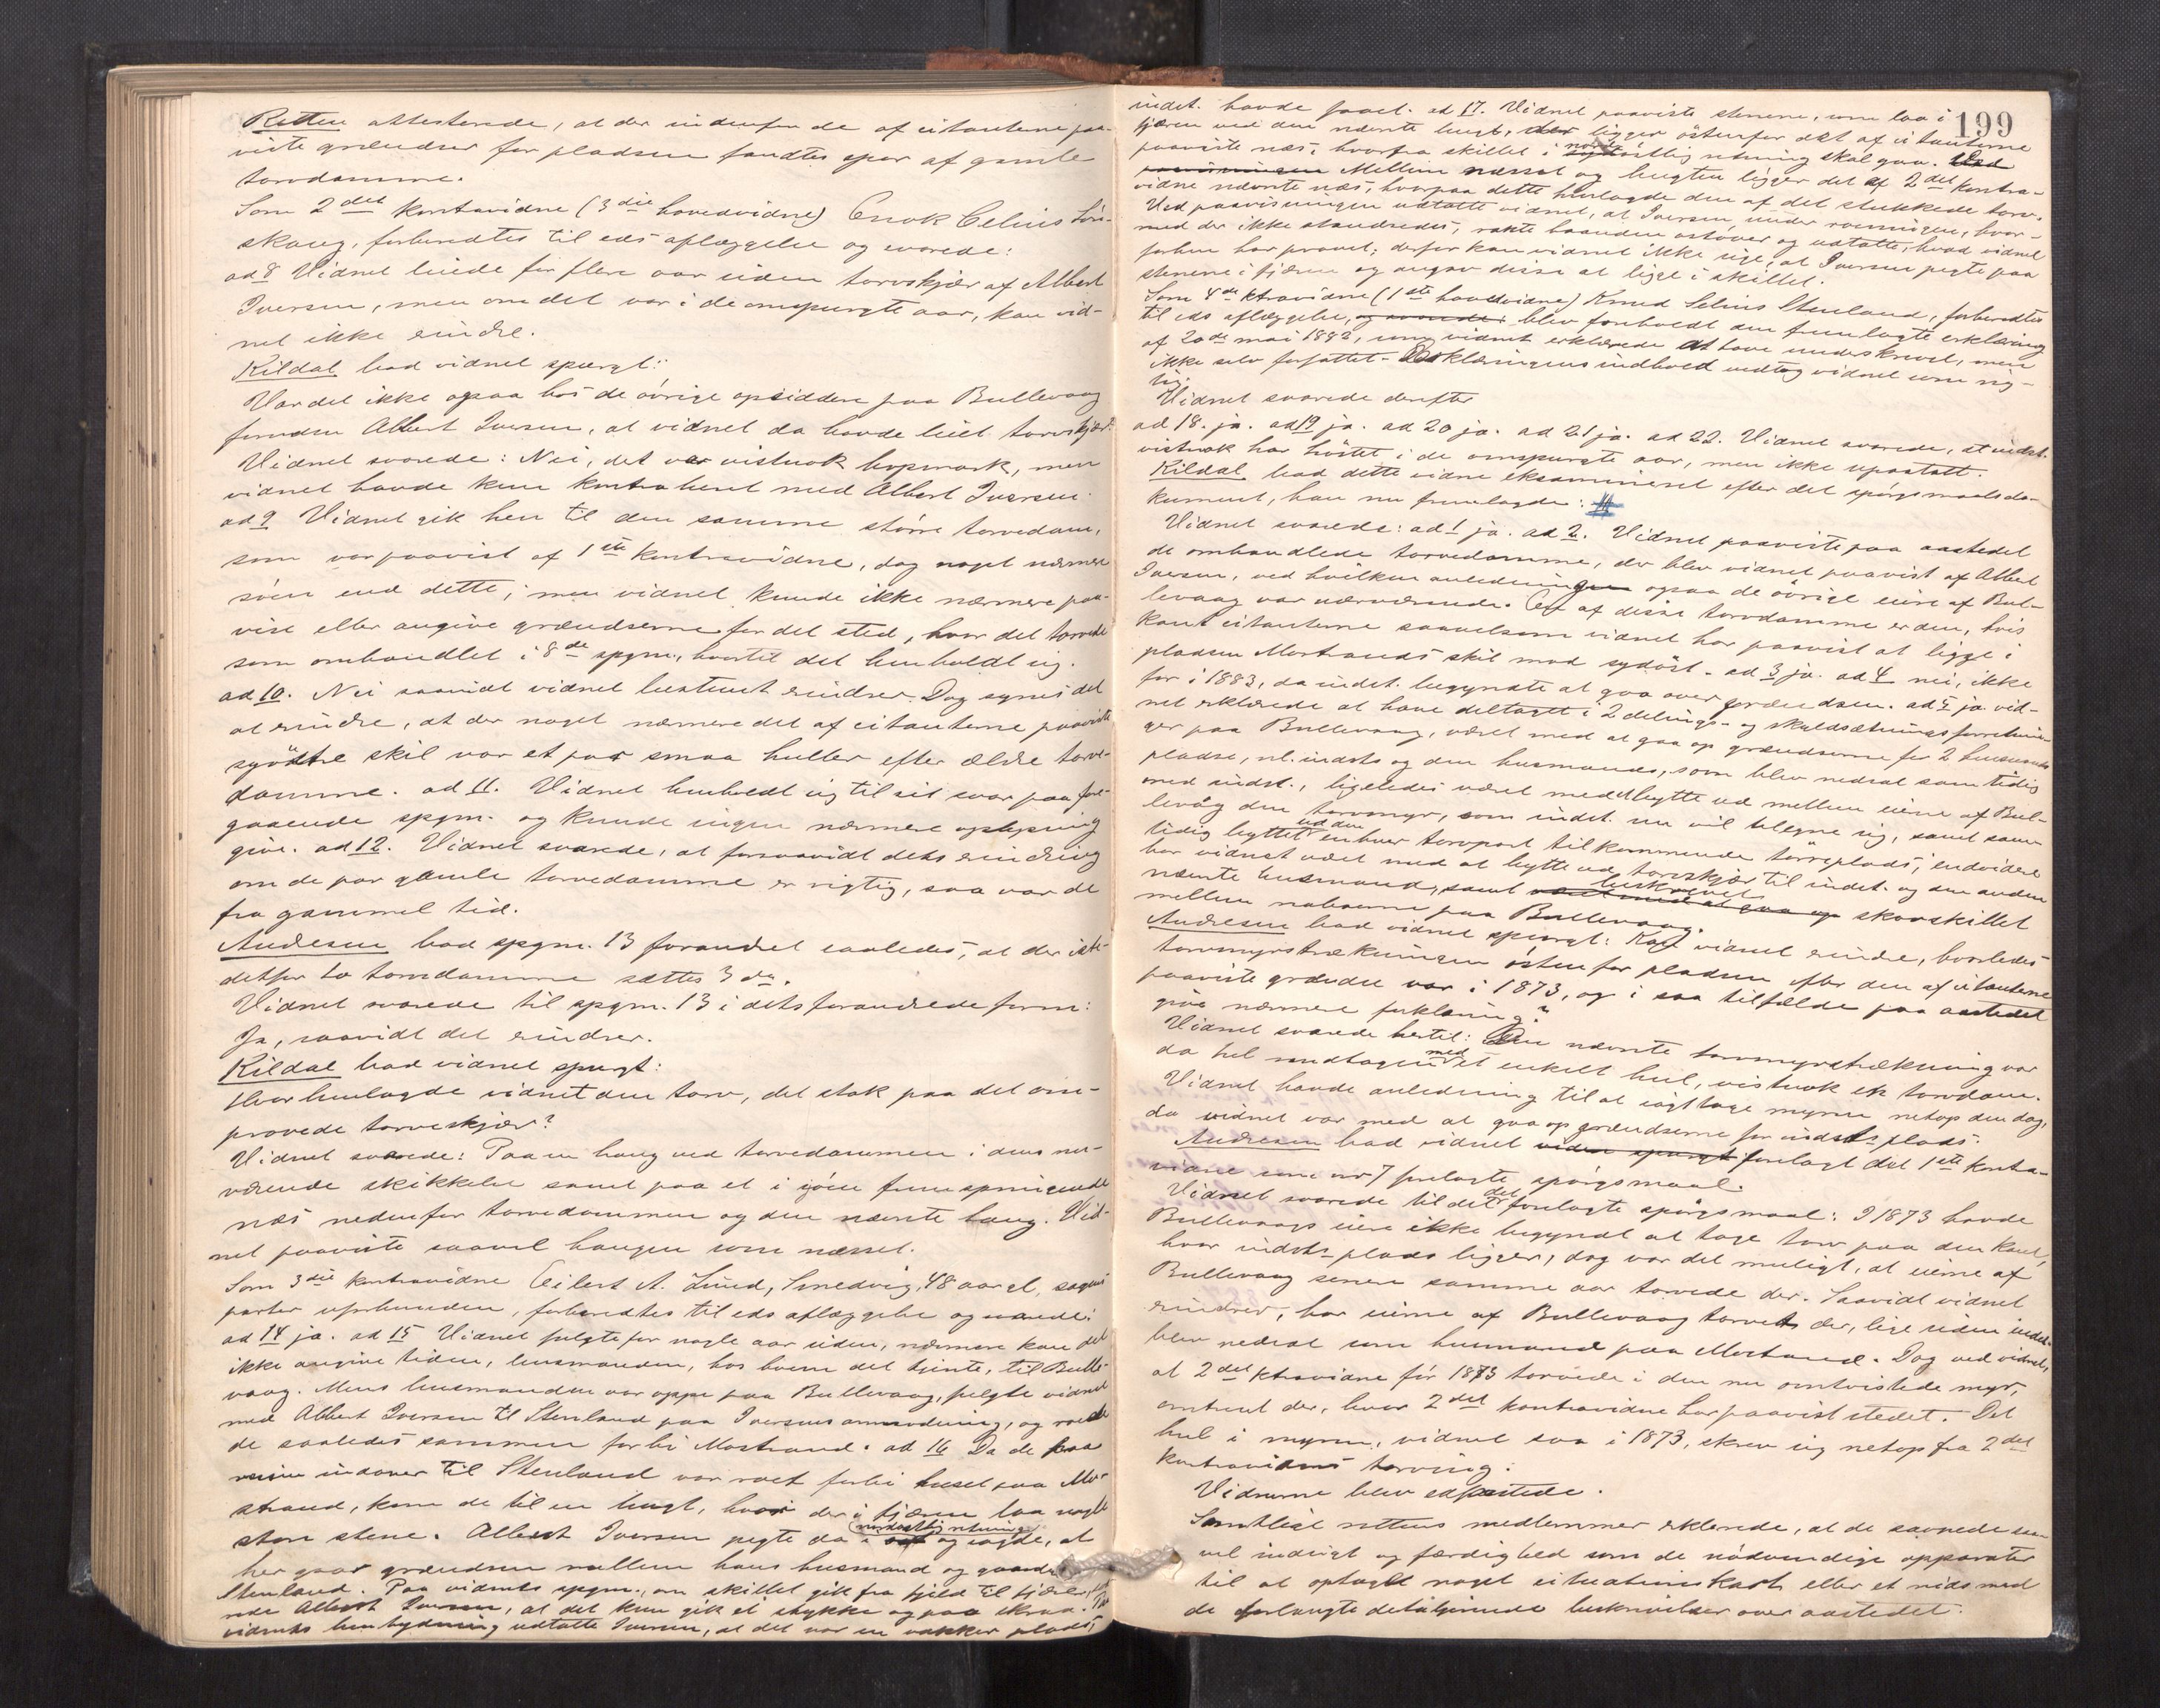 Retten attesterede, at der indenfor de af citanterne paa-
viste grændser for pladsen fandtes spor af gamle
torvdamme.
Som 2det kontravidne (3die hovedvidne) Enok Celius Lön-
skaug, forberedtes til eds aflæggelse og svarede:
ad 8 Vidnet leiede for flere aar siden torvskjær af Albert
Iversen, men om det var i de omspurgte aar, kan vid-
net ikke erindre.
Kildal bad vidnet spurgt:
Var det ikke ogsaa hos de övrige opsiddere paa Bullevaag
foruden Albert Iversen, at vidnet da havde leiet torvskjær?
Vidnet svarede: Nei, det var vistnok hopmark, men
vidnet havde kun kontraheret med Albert Iversen.
ad 9 Vidnet gik hen til den samme större torvedam,
som var paavist af 1ste kontravidne, dog noget nærmere
söen end dette; men vidnet kunde ikke nærmere paa-
vise eller angive grændserne for det sted, hvor det torvede
som omhandlet i 8de spgm., hvortil det henholdt sig.
ad 10. Nei saavidt vidnet bestemt erindrer. Dog synes det
at erindre, at der noget nærmere det af citanterne paaviste
sydöstre skil var et par smaa huller efter ældre torve-
damme. ad 11. Vidnet henholdt sig til sit svar paa fore-
gaaende spgm. og kunde ingen nærmere oplysning
give. ad 12. Vidnet svarede, at forsaavidt dets erindring
om de par gamle torvedamme er rigtig, saa var de
fra gammel tid.
Andresen bad spgm. 13 forandret saaledes, at der iste-
detfor to torvdamme sættes 3 do.
Vidnet svarede til spgm. 13 i dets forandrede form:
Ja, saavidt det erindrer.
Kildal bad vidnet spurgt:
Hvor henlagde vidnet den torv, det stak paa det om-
provede torveskjær?
Vidnet svarede: Paa en haug ved torvedammen i dens nu-
værende skikkelse samt paa et i söen fremspringende
næs nedenfor torvedammen og den nævnte haug. Vid-
net paaviste saavel haugen som næsset.
Som 3die kontravidne Eilert A. Lund, Smedvig, 48 aar gl., sagens
parter uforbunden, forberedtes til eds aflæggelse og svarede:
ad 14 ja. ad 15 Vidnet fulgte for nogle aar siden, nærmere kan det
ikke angive tiden, husmanden, hos hvem det tjente, til Bulle-
vaag. Mens husmanden var oppe paa Bullevaag, fulgte vidnet
med Albert Iversen til Stenland paa Iversens anmodning, og roede
de saaledes sammen forbi Mostrand. ad 16 Da de paa
reisen indover til Stenland var roet forbi huset paa Mo-
strand, kom de til en bugt, hvori der i fjæren laa nogle
store stene. Albert Iversen pegte da i nordostlig retning og sagde, at
her gaar grændsen mellem hans husmand og gaarden
Stenland. Paa vidnets spgm., om skillet gik fra fjeld til fjære,
Albert Iversen, at det kun gik et stykke og paa skraa. Paa
vidnets hentydning udtalte Iversen, at det var en vakker plads,
199
indst. havde faaet. ad 17. Vidnet paaviste stenene, som laa i
fjæren ved den nævnte bugt, der ligger östenfor det af citanterne
paaviste næs, hvorfra skillet i nordostlig retning skal gaa. Ved
paavisningen Mellem næsset og bugten ligger det af 2det kontra-
vidne nævnte næs, hvorpaa dette henlagde den af det stukkede torv.
Ved paavisningen udtalte vidnet, at Iversen under roeningen, hvor-
med der ikke standsedes, rakte haanden ostover og udtalte, hvad vidnet
forhen har provet; derfor kan vidnet ikke sige, at Iversen pegte paa
stenene i fjæren og angav disse at ligge i skillet.
Som 4de ktravidne (1ste hovedvidne) Knud Selius Stenland, forberedtes
til eds aflæggelse, og svarede: blev foreholdt den fremlagte erklæring
af 20de mai 1892, som vidnet erklærede at have underskrevet, men
ikke selv forfattet. Erklæringens indhold vedtog vidnet som rig-
tig.
Vidnet svarede derefter
ad 18. ja. ad 19 ja. ad 20 ja. ad 21 ja. ad 22. Vidnet svarede, at indst.
vistnok har höstet i de omspurgte aar, men ikke upaatalt.
Kildal bad dette vidne eksamineret efter det spörgsmaalsdo-
kument, han nu fremlagde:
Vidnet svarede: ad 1 ja. ad 2. Vidnet paaviste paa aastedet
de omhandlede torvedamme, der blev vidnet paavist af Albert
Iversen, ved hvilken anledning ogsaa de övrige eiere af Bul-
levaag var nærværende. En af disse torvdamme er den, hvis
kant citanterne saavelsom vidnet har paavist at ligge i
pladsen Mostrands skil mod sydöst. ad 3 ja. ad 4 nei, ikke
för i 1883, da indst. begyndte at gaa over grændsen. ad 5 ja. vid-
net erklærede at have deltaget i 2 delings- og skyldsætningsforretnin-
ger paa Bullevaag, været med at gaa op grændserne for 2 husmands-
pladse, nl. indsts og den husmands, som blev nedsat samtidig
med indst., ligeledes været med at bytte ud mellem eierne af Bul-
levåg den torvmyr, som indst. nu vil tilegne sig, samt sam-
tidig byttet ud den enhver torvpart tilkommende törreplads; endvidere
har vidnet været med at bytte ud torvskjær til indst. og den anden
nævnte husmand, samt beskrevet skovskillet
mellem naboerne paa Bullevaag.
Andresen bad vidnet spurgt: Kan vidnet erindre, hvorledes
torvmyrstrækningen östenfor pladsen efter den af citanterne
paaviste grændse var i 1873, og i saa tilfælde paa aastedet
give nærmere forklaring?
Vidnet svarede hertil: Den nævnte torvmyrstrækning var
da hel undtagen med et enkelt hul, vistnok en torvdam.
Vidnet havde anledning til at iagttage myren netop den dag,
da vidnet var med at gaa op grændserne for indsts plads.
Andresen bad vidnet viden spurgt forelagt det 1ste kontra-
vidne som nr 7 forelagte spörgsmaal.
Vidnet svarede til det det forelagte spörgsmaal: I 1873 havde
Bullevaags eiere ikke begyndt at tage torv paa den kant,
hvor indsts plads ligger, dog var det muligt, at eierne af
Bullevaag senere samme aar torvede der. Saavidt vidnet
erindrer, har eierne af Bullevaag torvet der, lige siden indst.
blev nedsat som husmand paa Mostrand. Dog ved vidnet,
at 2det ktravidne för 1873 torvede i den nu omtvistede myr,
omtrent der, hvor 2det kontravidne har paavist stedet. Det
hul i myren, vidnet saa i 1873, skrev sig netop fra 2det
kontravidnes torving.
Vidnerne blev edfæstede.
Samtlige rettens medlemmer erklærede, at de savnede saa-
vel indsigt og færdighed som de nödvendige apparater
til at optage noget situationskart eller et rids med
de forlangte detaljerede beskrivelser over aastedet.